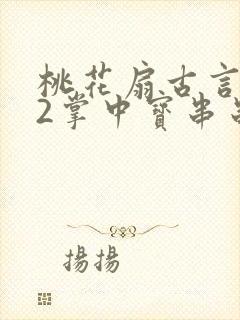 桃花扇古言
2掌中寶串
揚揚